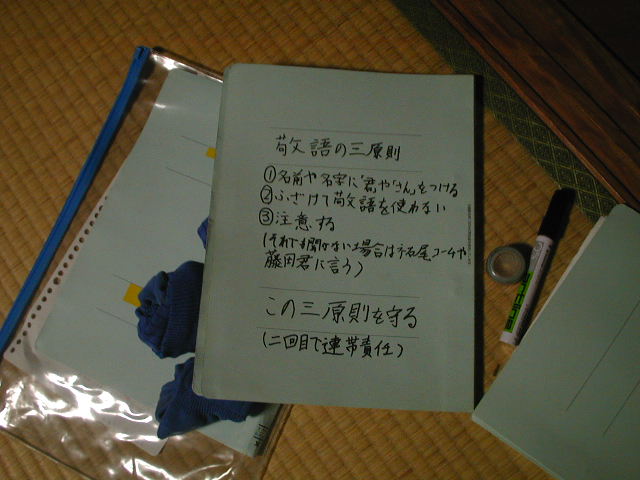 敬語の三原則
①名前や名字に「君」や「さん」をつける
②ふざけて敬語を使わない
③注意する
(それでも聞かない場合は千石尾コーチや
藤田君に言う)
この三原則を守る
(二回目で連帯責任)